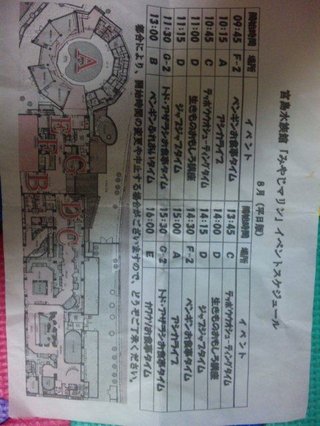 宮島水族館「みやじマリン」イベントスケジュール
8月（平日版）
開始時間 場所 イベント 開始時間 場所 イベント
09:45 F-2 ペンギンお食事タイム 13:45 C テッポウウオシューティングタイム
10:15 A アシカライブ 14:00 D 生きものおもしろ講座
10:45 C テッポウウオシューティングタイム 14:15 D ジャブジャブタイム
11:00 D 生きものおもしろ講座 14:30 F-2 ペンギンお食事タイム
11:15 D ジャブジャブタイム 15:00 A アシカライブ
11:30 G-2 トド・アザラシお食事タイム 15:30 G-2 トド・アザラシお食事タイム
13:00 B ペンギンふれあいタイム 16:00 E カワウソお食事タイム
都合により、開始時間の変更や中止する場合がございますので、どうぞご了承ください。
A
G
D
C
F
E
B